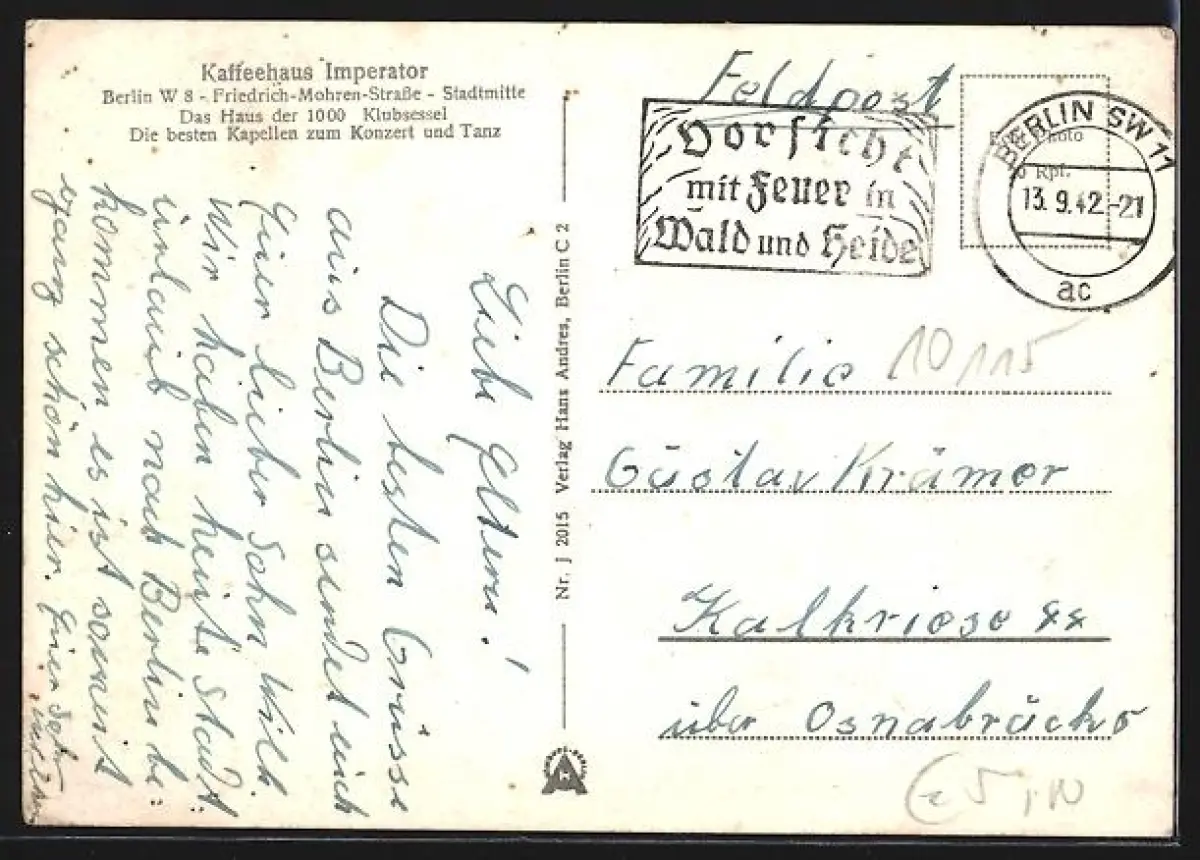 Kaffeehaus Imperator
Berlin W 8 - Friedrich-Mohren-Straße - Stadtmitte
Das Haus der 1000 Klubsessel
Die besten Kapellen zum Konzert und Tanz
Liebe Eltern!
Die besten Grüsse
aus Berlin sendet euch
Euer lieber Sohn Wilh.
Wir haben heute Stadt-
urlaub nach Berlin be=
kommen es ist soweit
ganz schön hier. Euer
Nr. J 2015 Verlag Hans Andres, Berlin C 2
Feldpost
Vorsicht
mit Feuer in
Wald und Heide
BERLIN SW 11
13.9.42.-21
ac
Rpf.
Familie
10115
Gustav Krämer
Kalkriese 88
über Osnabrück
5,-